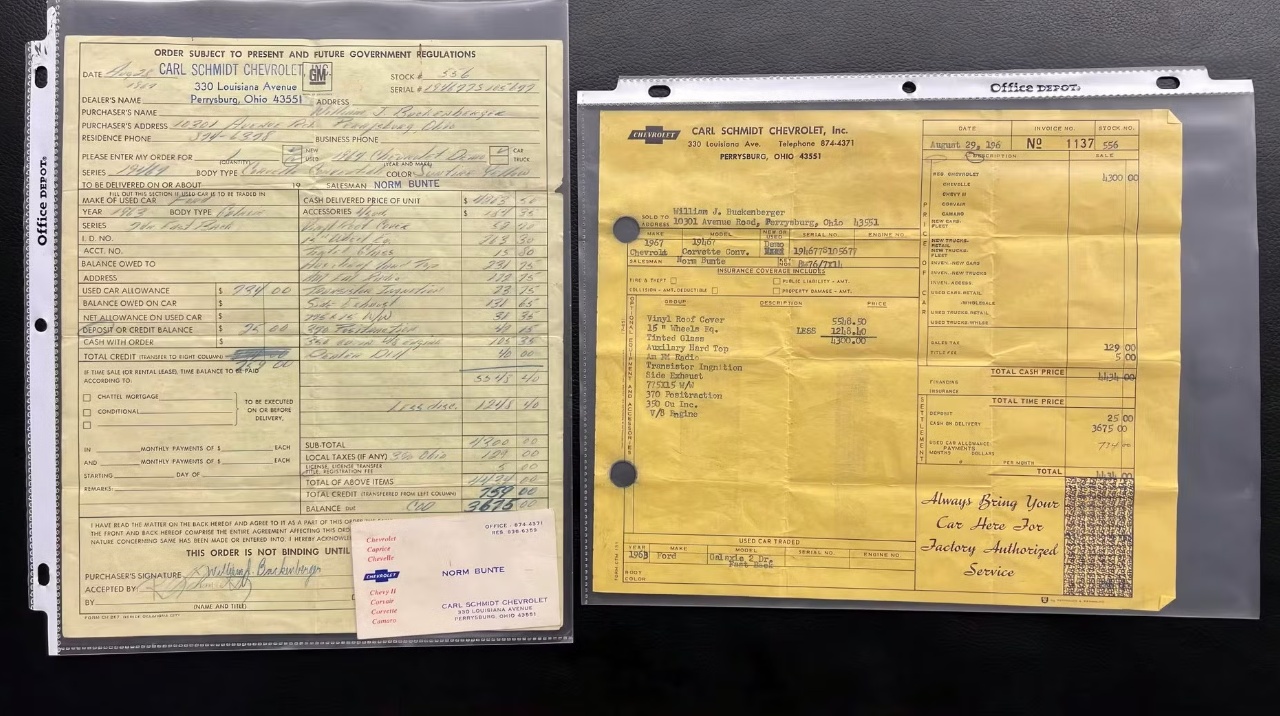 Office DEPOT.
ORDER SUBJECT TO PRESENT AND FUTURE GOVERNMENT REGULATIONS
DATE Aug 28
CARL SCHMIDT CHEVROLET, INC.
GM
330 Louisiana Avenue
Perrysburg, Ohio 43551
STOCK # 556
SERIAL #
DEALER'S NAME
ADDRESS
PURCHASER'S NAME William J. Buckenberger
PURCHASER'S ADDRESS 10301 Avenue Rd. Perrysburg Ohio
RESIDENCE PHONE 874-6378 BUSINESS PHONE
PLEASE ENTER MY ORDER FOR 1 (QUANTITY) NEW USED 1967 Chevrolet Demo (YEAR AND MAKE) CAR TRUCK
SERIES 19467 BODY TYPE COLOR
TO BE DELIVERED ON OR ABOUT 19 SALESMAN NORM BUNTE
FILL OUT THIS SECTION IF USED CAR IS TO BE TRADED IN
MAKE OF USED CAR Ford
CASH DELIVERED PRICE OF UNIT $
YEAR 1963 BODY TYPE
ACCESSORIES
SERIES
I. D. NO.
ACCT. NO.
BALANCE OWED TO
ADDRESS
USED CAR ALLOWANCE $ 734 00
Transistor Ignition 23 75
BALANCE OWED ON CAR
Side Exhaust 131 65
NET ALLOWANCE ON USED CAR $
775 x 15 W/W 31 35
DEPOSIT OR CREDIT BALANCE $ 25 00
370 Positraction 42 15
CASH WITH ORDER $
350 cu in V/8 engine 105 35
TOTAL CREDIT (TRANSFER TO RIGHT COLUMN)
40 00
IF TIME SALE (OR RENTAL LEASE), TIME BALANCE TO BE PAID
ACCORDING TO:
5548 40
CHATTEL MORTGAGE
CONDITIONAL
TO BE EXECUTED ON OR BEFORE DELIVERY,
Less disc. 1248 40
IN MONTHLY PAYMENTS OF $ EACH
SUB-TOTAL 4300 00
AND MONTHLY PAYMENTS OF $ EACH
LOCAL TAXES (IF ANY) 3% Ohio 129 00
STARTING DAY OF
LICENSE, LICENSE TRANSFER TITLE, REGISTRATION FEE 5 00
TOTAL OF ABOVE ITEMS
REMARKS:
TOTAL CREDIT (TRANSFERRED FROM LEFT COLUMN) 759 00
BALANCE DUE COD 3675 00
I HAVE READ THE MATTER ON THE BACK HEREOF AND AGREE TO IT AS A PART OF THIS
THE FRONT AND BACK HEREOF COMPRISE THE ENTIRE AGREEMENT AFFECTING THIS
NATURE CONCERNING SAME HAS BEEN MADE OR ENTERED INTO. I HEREBY
THIS ORDER IS NOT BINDING UNTIL
PURCHASER'S SIGNATURE William Buckenberger
ACCEPTED BY
BY
(NAME AND TITLE)
OFFICE - 874-4371
Chevrolet
Caprice
Chevelle
CHEVROLET
NORM BUNTE
Chevy II
Corvair
Corvette
Camaro
CARL SCHMIDT CHEVROLET
330 LOUISIANA AVENUE
PERRYSBURG, OHIO 43551
Office DEPOT.
CHEVROLET CARL SCHMIDT CHEVROLET, Inc.
330 Louisiana Ave. Telephone 874-4371
PERRYSBURG, OHIO 43551
DATE INVOICE NO. STOCK NO.
August 29, 196 Nº 1137 556
DESCRIPTION SALE
NEW CHEVROLET 4300 00
CHEVELLE
CHEVY II
CORVAIR
CAMARO
NEW CARS-FLEET
NEW TRUCKS-RETAIL
NEW TRUCKS-FLEET
INVEN.-NEW CARS
INVEN.-NEW TRUCKS
INVEN. ACCESS.
USED CARS-RETAIL
WHOLESALE
USED TRUCKS-RETAIL
USED TRUCKS-WHLES.
PRICE OF CAR
SALES TAX 129 00
TITLE FEE 5 00
TOTAL CASH PRICE 4434 00
FINANCING
INSURANCE
TOTAL TIME PRICE
SETTLEMENT
DEPOSIT 25 00
CASH ON DELIVERY 3675 00
USED CAR ALLOWANCE
PAYMENTS
MONTHS DOLLARS
PER MONTH
TOTAL 4434 00
Always Bring Your
Car Here For
Factory Authorized
Service
SOLD TO William J. Buckenberger
ADDRESS 10301 Avenue Road, Perrysburg, Ohio 43551
MAKE MODEL NEW OR USED SERIAL NO. ENGINE NO.
1967 19467 Demo
Chevrolet Corvette Conv. 194677S105677
SALESMAN Norm Bunte KEY NOS.
INSURANCE COVERAGE INCLUDES
FIRE & THEFT PUBLIC LIABILITY - AMT.
COLLISION - AMT. DEDUCTIBLE PROPERTY DAMAGE - AMT.
GROUP DESCRIPTION PRICE
OPTIONAL EQUIPMENT AND ACCESSORIES
Vinyl Roof Cover 5548.50
15 " Wheels Eq. LESS 1248.40
Tinted Glass 4300.00
Auxilary Hard Top
Am FM Radio
Transistor Ingnition
Side Exhaust
775X15 W/W
370 Positraction
350 Cu Inc.
V/8 Engine
USED CAR TRADED
YEAR MAKE MODEL SERIAL NO. ENGINE NO.
1963 Ford Galaxie 2 Dr.
Fast Back
BODY
COLOR